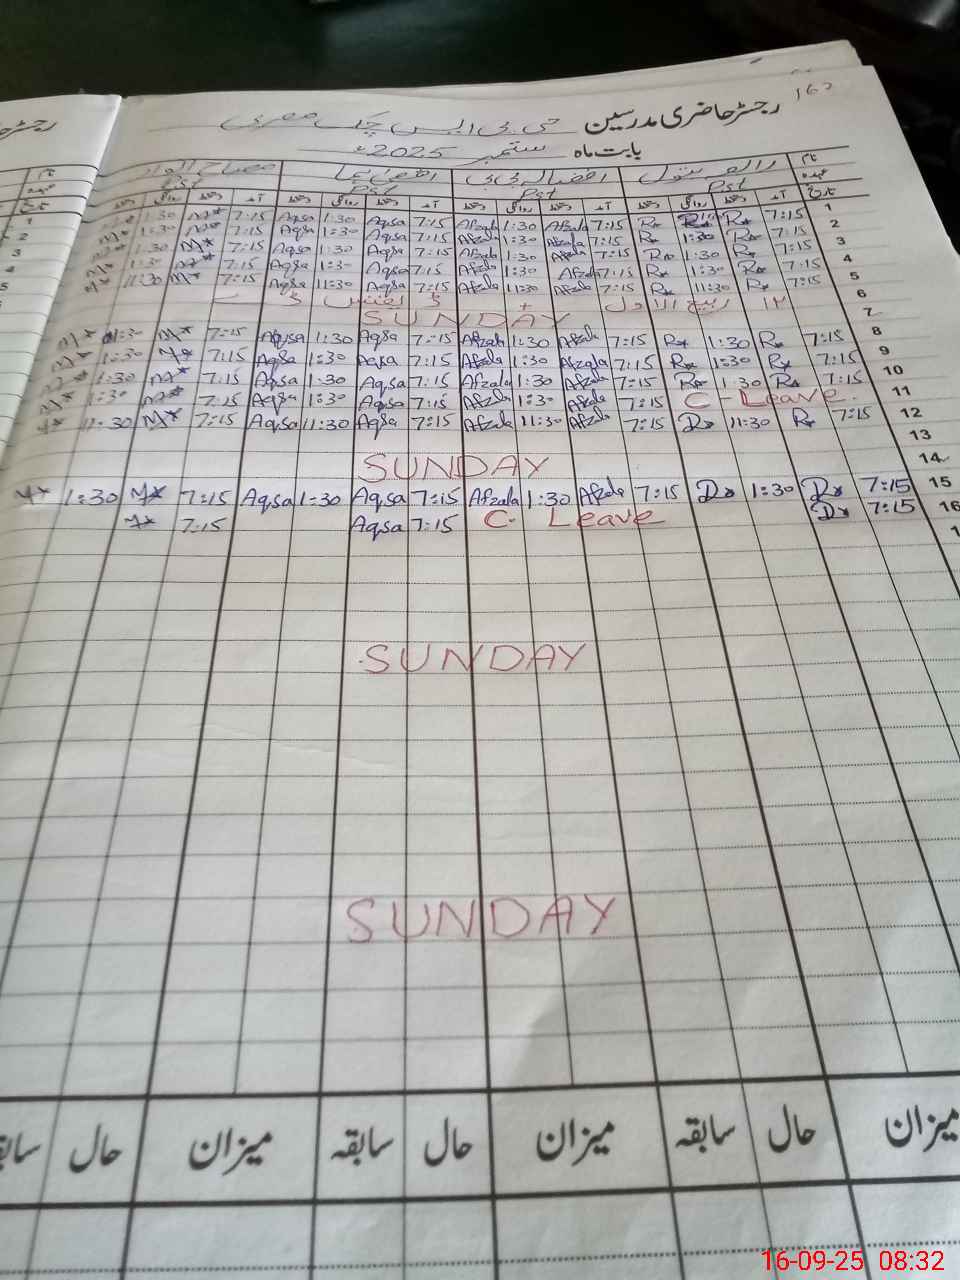 رجسٹر حاضری مدرسین جی بی ایس چک مصری
بابت ماہ ستمبر 2025ء
نام رابعہ بتول افضالہ بی بی
عہدہ Pst Pst Pst Pst
تاریخ آمد دستخط روانگی دستخط آمد دستخط روانگی دستخط آمد دستخط روانگی دستخط آمد دستخط روانگی
1 7:15 R* R* 7:15 Afzala 1:30 Afzala 7:15 Aqsa 1:30 Aqsa 7:15 M* 1:30
2 7:15 R* 1:30 R* 7:15 Afzala 1:30 Afzala 7:15 Aqsa 1:30 Aqsa 7:15 M* 1:30 M*
3 7:15 R* 1:30 R* 7:15 Afzala 1:30 Afzala 7:15 Aqsa 1:30 Aqsa 7:15 M* 1:30 M*
4 7:15 R* 1:30 R* 7:15 Afzala 1:30 Afzala 7:15 Aqsa 1:30 Aqsa 7:15 M* 1:30 M*
5 7:15 R* 11:30 R* 7:15 Afzala 11:30 Afzala 7:15 Aqsa 11:30 Aqsa 7:15 M* 11:30 M*
6 ۱۲ ربیع الاول + ڈیفنس ڈے
7 SUNDAY
8 7:15 R* 1:30 R* 7:15 Afzala 1:30 Afzala 7:15 Aqsa 1:30 Aqsa 7:15 M* 1:30 M*
9 7:15 R* 1:30 R* 7:15 Afzala 1:30 Afzala 7:15 Aqsa 1:30 Aqsa 7:15 M* 1:30 M*
10 7:15 R* 1:30 R* 7:15 Afzala 1:30 Afzala 7:15 Aqsa 1:30 Aqsa 7:15 M* 1:30 M*
11 C-Leave. 7:15 Afzala 1:30 Afzala 7:15 Aqsa 1:30 Aqsa 7:15 M* 1:30 M*
12 7:15 R* 11:30 R* 7:15 Afzala 11:30 Afzala 7:15 Aqsa 11:30 Aqsa 7:15 M* 11:30 M*
13
14 SUNDAY
15 7:15 R* 1:30 R* 7:15 Afzala 1:30 Afzala 7:15 Aqsa 1:30 Aqsa 7:15 M* 1:30 M*
16 7:15 R* C- Leave 7:15 Aqsa 7:15 M*
SUNDAY
SUNDAY
میزان حال سابقہ میزان حال سابقہ میزان حال
16-09-25 08:32